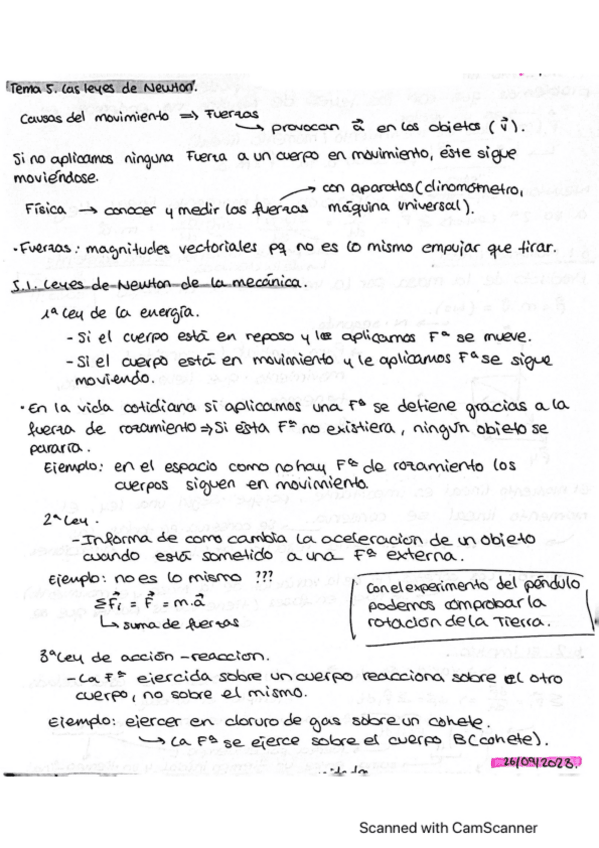 Tema 5. Las leyes de Newton.
Causas del movimiento ⇒ Fuerzas
→ provocan a⃗ en los objetos (v⃗).
Si no aplicamos ninguna Fuerza a un cuerpo en movimiento, éste sigue
moviéndose.
→ con aparatos (dinomómetro,
Física → conocer y medir las fuerzas máquina universal).
· Fuerzas: magnitudes vectoriales pq no es lo mismo empujar que tirar.
5.1. Leyes de Newton de la mecánica.
1ª Ley de la energía.
- Si el cuerpo está en reposo y le aplicamos Fª se mueve.
- Si el cuerpo está en movimiento y le aplicamos Fª se sigue
moviendo.
· En la vida cotidiana si aplicamos una Fª se detiene gracias a la
fuerza de rozamiento ⇒ Si esta Fª no existiera, ningún objeto se
pararía.
Ejemplo: en el espacio como no hay Fª de rozamiento los
cuerpos siguen en movimiento.
2ª Ley.
- Informa de como cambia la aceleración de un objeto
cuando está sometido a una Fª externa.
Ejemplo: no es lo mismo ???
ΣF⃗i = F⃗ = m·a⃗
↳ suma de fuerzas
con el experimento del péndulo
podemos comprobar la
rotación de la Tierra.
3ª Ley de acción - reacción.
- La Fª ejercida sobre un cuerpo reacciona sobre el otro
cuerpo, no sobre el mismo.
Ejemplo: ejercer en cloruro de gas sobre un cohete.
↳ La Fª se ejerce sobre el cuerpo B (cohete).
26/09/2023.
Scanned with CamScanner